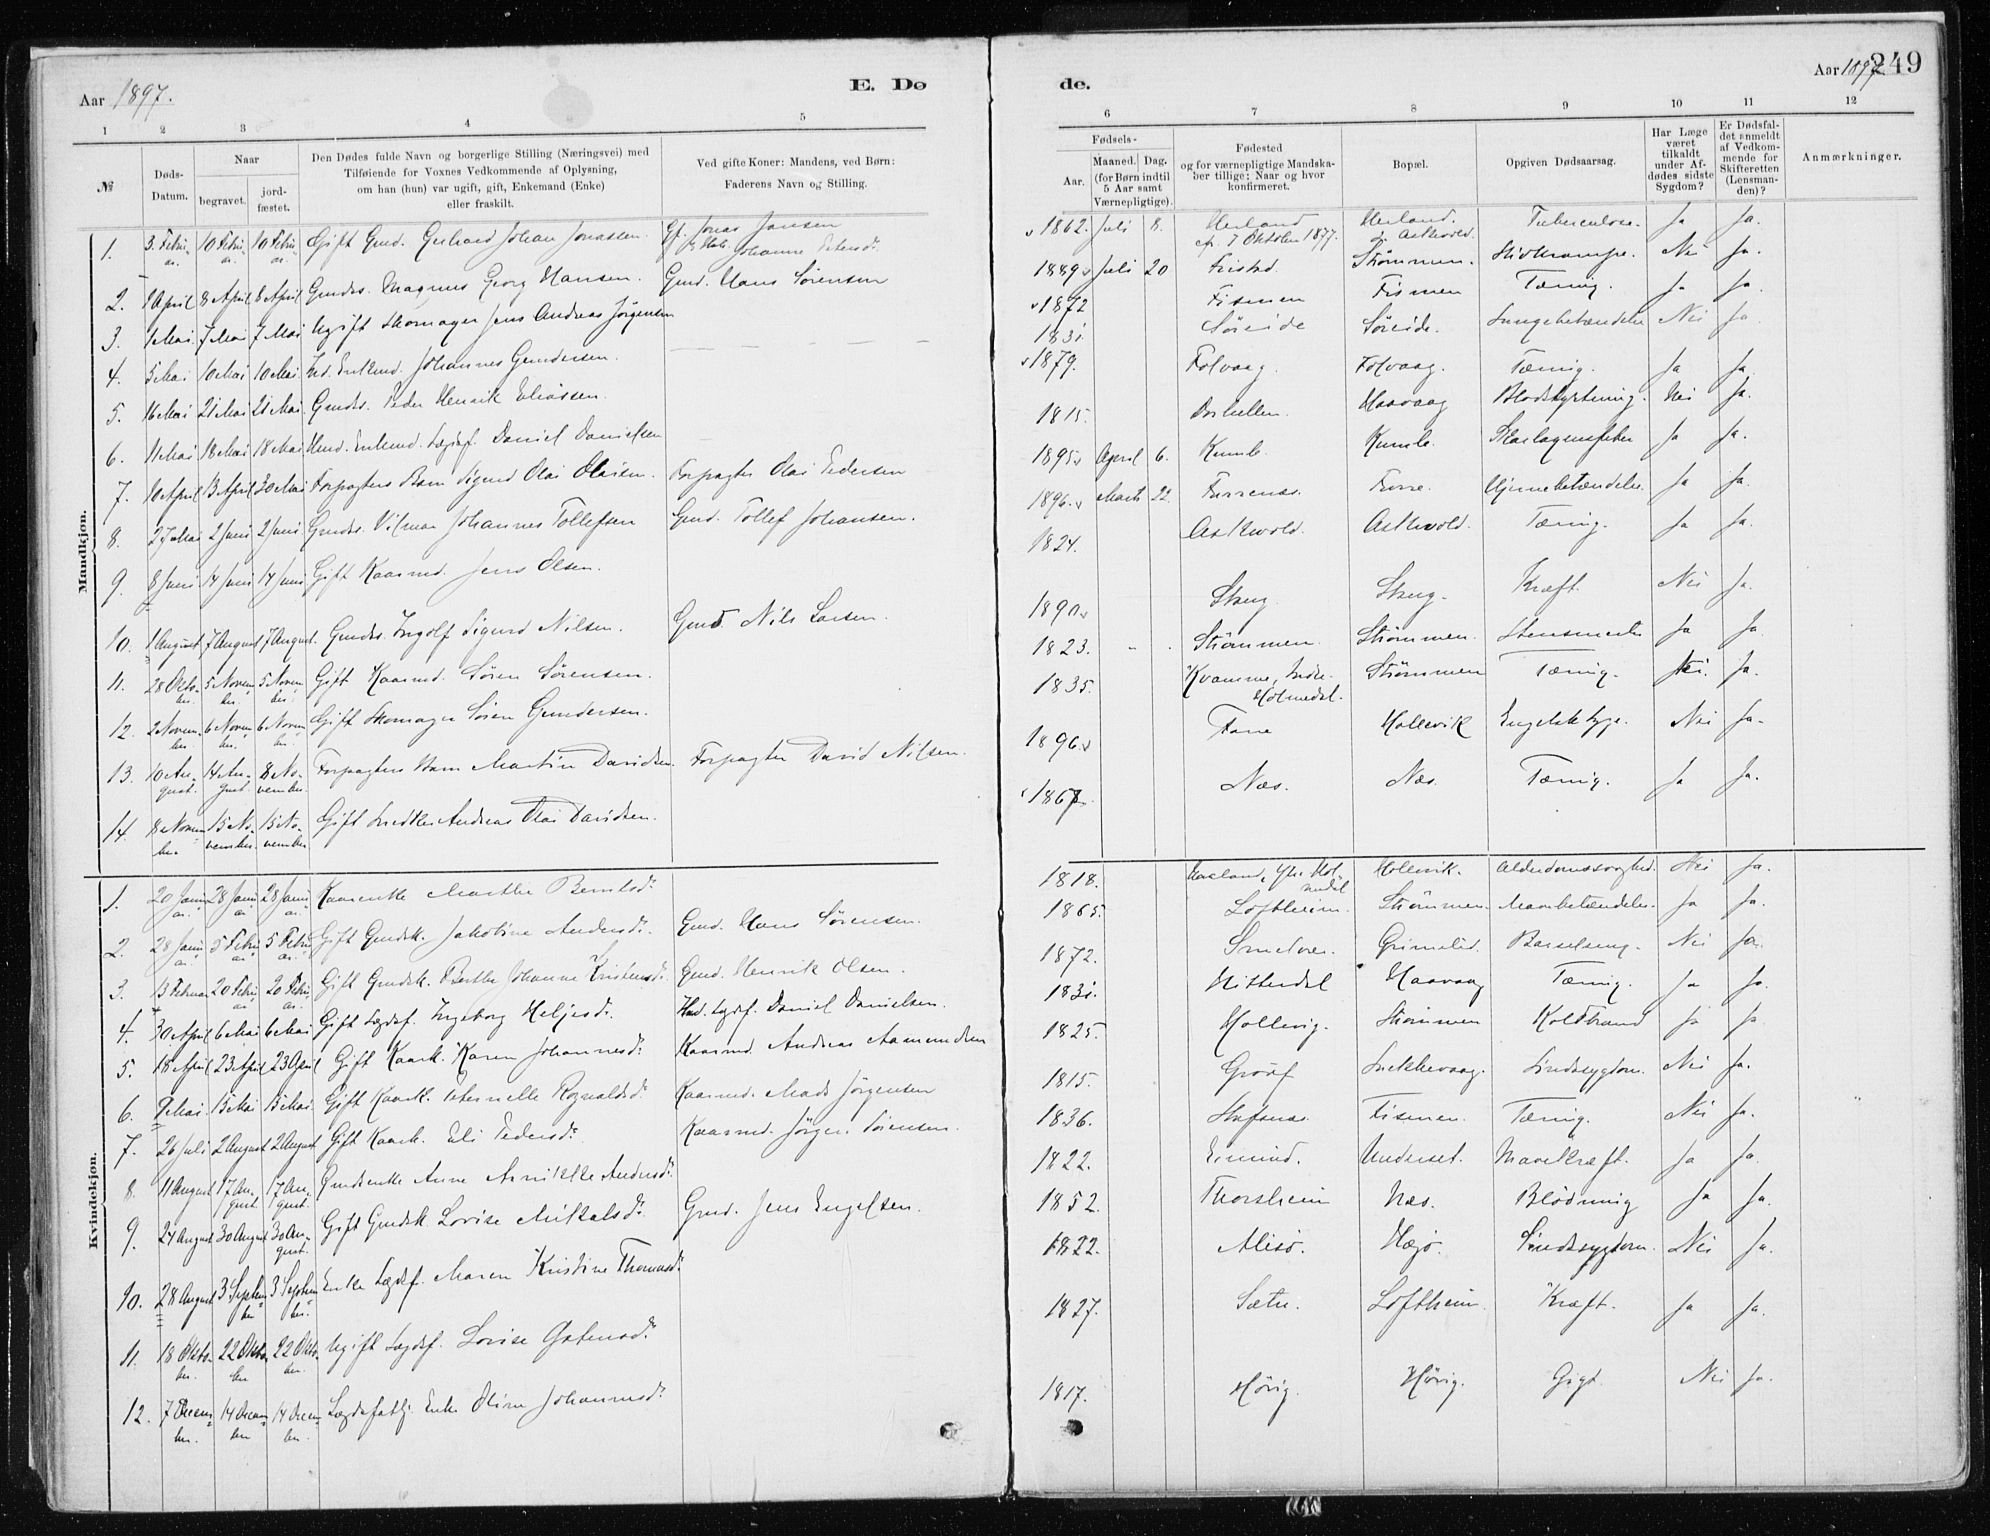 Aar 1897.
E. Dø
de.
Aar 1897.
249
1 2 3 4 5
6 7 8 9 10 11 12
№
Døds-Datum.
Naar
begravet.
jord-fæstet.
Den Dødes fulde Navn og borgerlige Stilling (Næringsvei) med
Tilføiende for Voxnes Vedkommende af Oplysning,
om han (hun) var ugift, gift, Enkemand (Enke)
eller fraskilt.
Ved gifte Koner: Mandens, ved Børn:
Faderens Navn og Stilling.
Fødsels-
Aar.
Maaned. Dag.
(for Børn indtil
5 Aar samt
Værnepligtige).
Fødested
og for værnepligtige Mandska-
ber tillige: Naar og hvor
konfirmeret.
Bopæl.
Opgiven Dødsaarsag.
Har Læge
været
tilkaldt
under Af-
dødes sidste
Sygdom?
Er Dødsfal-
det anmeldt
af Vedkom-
mende for
Skifteretten
(Lensman-
den)?
Anmærkninger.
Mandkjøn.
1. 3. Febru ar. 10 Febru ar. 10 Febru ar. Gift Gmd. Gerhard Johan Jonassen. Jonas Jansen Johanne Petersdr. 1862. Juli 8. Herland 7 Oktober 1877. Herland. Askvold. Tuberculose. Ja Ja.
2. 1 April 8 April 8 April Gmds. Magnus Georg Hansen. Gmd. Hans Sørensen 1889 Juli 20 Strømmen. Nei Ja.
3. 1 Mai 7 Mai 7 Mai Ugift Skomager Jens Andreas Jørgensen 1872 Fismen Fismen Tæring. Ja Ja.
4. 5 Mai 10 Mai 10 Mai Enkmd. Johannes Gundersen. 1831 Søreide Søreide. Lungebetændelse Nei Ja
5. 16 Mai 21 Mai 21 Mai Gmds. Peder Henrik Eliassen. 1879. Folvaag. Folvaag. Tæring. Ja Ja.
6. 11 Mai 18 Mai 18 Mai Enkmd. Lægdsf. Daniel Danielsen 1815. Haavaag Blodstyrtning. Nei Ja.
7. 10 April 13 April 30 Mai Forpagters Barn Sigurd Olai Olaisen. Forpagter Olai Pedersen 1895 April 6. Kumle. Kumle. Skarlagensfeber Ja Ja.
8. 27 Mai 2 Juni 2 Juni Gmds. Vilmar Johannes Tollefsen Gmd. Tollef Johansen. 1896. Marts 22. Furrenæs. Furre. Hjernebetændelse. Ja Ja.
9 8 Juni 14 Juni 14 Juni Gift Kaarmd. Jens Olsen. 1824. Askvold. Askvold. Tæring. Ja Ja.
10. 1 August 7 August 7 August. Gmds. Ingolf Sigurd Nilsen. Gmd. Nils Larsen. 1890 Skeng Skeng. Kræft. Nei Ja.
11. 28 Okto- ber. 5 Novem ber. 5 Novem ber. Gift Kaarmd. Søren Sørensen. 1823. Strømmen. Strømmen. Stensmerter Ja Ja
12. 2 Novem- ber. 6 Novem ber. 6 Novem ber. Gift Skomager Søren Gundersen. 1835. Kvamme, Indre- Holmedal. Strømmen Tæring. Nei. Ja.
13. 10 Au- gust. 14 Au- gust. 8 No- vember. Forpagters Barn Martin Davidsen. Forpagter David Nilsen. 1896 Furre Hollevik Engelsk syge. Nei Ja.
14. 8 Novem ber. 15 No- vember. 15 No- vember Gift Andreas Olai Davidsen. 1867. Næs. Næs. Tæring. Ja Ja.
Kvindekjøn.
1. 20 Janu ar. 28 Janu ar 28 Janu ar. Kaarenke Marthe Berntsdr. 1818. Aaland, Ytr. Hol- medal Hollevik. Alderdomssvaghed. Nei Ja.
2. 28 Janu ar. 5 Febru ar. 5 Febru ar. Gift Gmdsk. Jakobine Andersdr. Gmd. Hans Sørensen. 1865. Loftheim. Strømmen. Mavebetændelse. Ja Ja.
3. 13 Februar 20 Febru ar 20 Febru ar. Gift Gmdsk. Berthe Johanne Kristensdr. Gmd. Henrik Olsen. 1872. Smelvær. Grimelid. Barselseng. Nei Ja.
4. 30 April 6 Mai 6 Mai Gift Lægdsf. Ingeborg Heljesdr. Lægdsf. Daniel Danielsen. 1831. Hitterdal Haavaag Tæring. Ja Ja.
5. 18 April 23 April 23 April Gift Kaark. Karen Johannesdr. Kaarmd. Andreas Aamundsen 1825. Hollevig. Strømmen Koldbrand Ja Ja
6. 9 Mai. 15 Mai 15 Mai. Gift Kaark. Peternelle Rognaldsdr. Kaarmd. Mads Jørgensen 1815. Grøöf Sindssygdom. Nei Ja.
7. 26 Juli 2 August 2 August Gift Kaark. Eli Pedersdr. Kaarmd. Jørgen Sørensen. 1836. Stafsnæs. Fismen. Tæring. Nei Ja.
8. 11 August 17 Au- gust. 17 Au- gust. Gmdsenke Anne Andersdr. 1822. Eimind. Underset. Mavekræft. Ja Ja.
9. 24 August 30 August 30 Au- gust. Gift Gmdsk. Lovise Mikalsdr. Gmd. Jens Engelsen. 1852. Thorsheim Næs. Blødning Ja Ja.
10. 28 August 3 Septem ber 3 Septem ber. Enke Lægdsf. Maren Kristine Thomasdr. 1822. Alisø. Hægø. Sindssygdom. Nei Ja.
11. 18 Okto- ber. 22 Okto- ber 22 Okto- ber. Ugift Lægdsf. Lovise 1827. Sætre. Loftheim. Kræft. Ja Ja.
12. 7 Decem- ber. 14 Decem- ber 14 Decem- ber. Lægdsfattig Enke Oline Johannesdr. 1817. Hövig. Hövig. Gigt. Nei Ja.